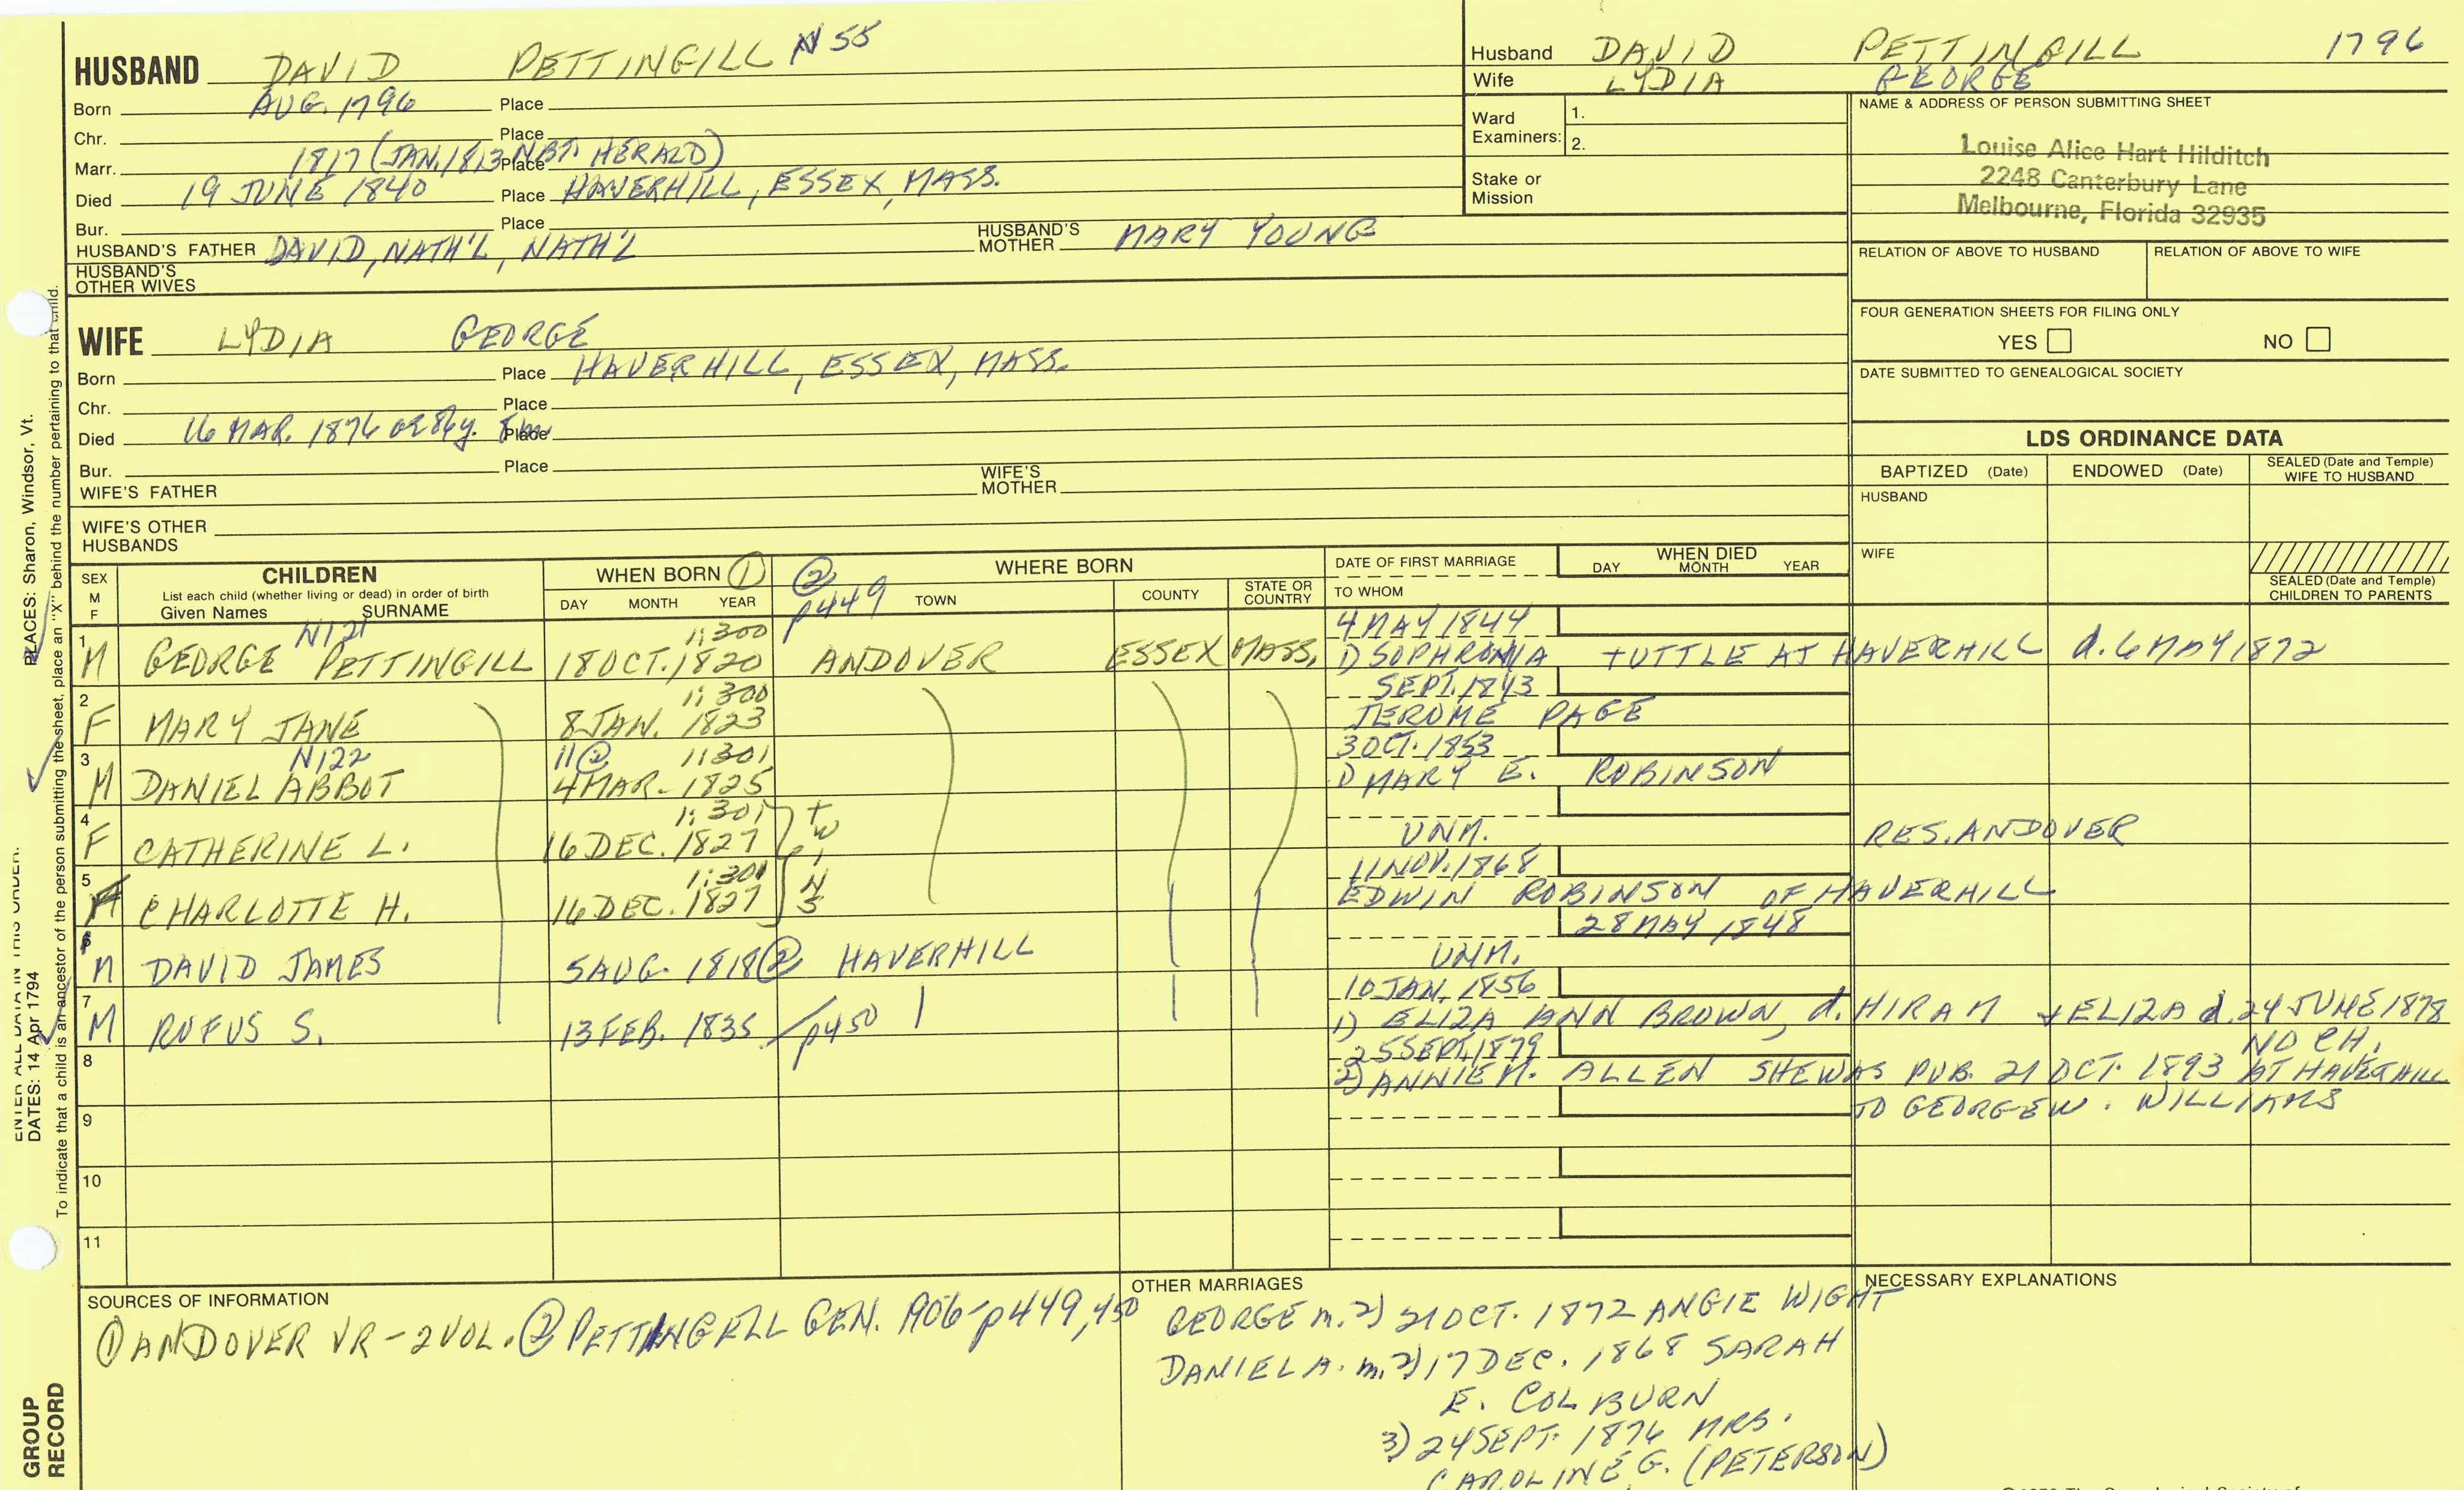 HUSBAND DAVID PETTINGILL N55
Born AUG. 1796 Place
Chr. Place
Marr. 1817 (JAN. 1813 NBT. HERALD) Place
Died 19 JUNE 1840 Place HAVERHILL, ESSEX, MASS.
Bur. Place
HUSBAND'S FATHER DAVID, NATH'L, NATH'L HUSBAND'S MOTHER MARY YOUNG
HUSBAND'S OTHER WIVES
WIFE LYDIA GEORGE
Born Place HAVERHILL, ESSEX, MASS.
Chr. Place
Died 16 MAR. 1876 Place
Bur. Place
WIFE'S FATHER WIFE'S MOTHER
WIFE'S OTHER HUSBANDS
Husband DAVID PETTINGILL 1796
Wife LYDIA GEORGE
Ward Examiners: 1.
2.
Stake or Mission
NAME & ADDRESS OF PERSON SUBMITTING SHEET
Louise Alice Hart Hilditch
2248 Canterbury Lane
Melbourne, Florida 32935
RELATION OF ABOVE TO HUSBAND RELATION OF ABOVE TO WIFE
FOUR GENERATION SHEETS FOR FILING ONLY
YES NO
DATE SUBMITTED TO GENEALOGICAL SOCIETY
LDS ORDINANCE DATA
BAPTIZED (Date) ENDOWED (Date) SEALED (Date and Temple) WIFE TO HUSBAND
HUSBAND
WIFE
SEALED (Date and Temple) CHILDREN TO PARENTS
SEX M F CHILDREN
List each child (whether living or dead) in order of birth
Given Names SURNAME
WHEN BORN ①
DAY MONTH YEAR
② p449
WHERE BORN
TOWN COUNTY STATE OR COUNTRY
DATE OF FIRST MARRIAGE
TO WHOM
WHEN DIED
DAY MONTH YEAR
N121 1:300 4 MAY 1844
1 M GEORGE PETTINGILL 18 OCT. 1820 ANDOVER ESSEX MASS. 1) SOPHRONIA TUTTLE AT HAVERHILL d. 6 MAY 1872
1:300 SEPT. 1843
2 F MARY JANE 8 JAN. 1823 JEROME PAGE
N122 11② 1:301 3 OCT. 1853
3 M DANIEL ABBOT 4 MAR. 1825 1) MARY E. ROBINSON
1:301
4 F CATHERINE L. 16 DEC. 1827 TWINS UNM. RES. ANDOVER
1:301 11 NOV. 1868
5 F CHARLOTTE H. 16 DEC. 1827 EDWIN ROBINSON OF HAVERHILL
28 MAY 1848
6 M DAVID JAMES 5 AUG. 1818② HAVERHILL UNM.
10 JAN. 1856
7 M RUFUS S. 13 FEB. 1835 p450 1) ELIZA ANN BROWN, d. HIRAM + ELIZA d. 24 JUNE 1878
25 SEPT. 1879 NO CH.
8 2) ANNIE M. ALLEN SHE WAS PUB. 21 OCT. 1893 AT HAVERHILL
9 TO GEORGE W. WILLIAMS
10
11
SOURCES OF INFORMATION
① ANDOVER VR - 2 VOL. ② PETTINGELL GEN. 1906 - p449, 450
OTHER MARRIAGES
GEORGE m. 2) 21 OCT. 1872 ANGIE WIGHT
DANIEL A. m. 2) 17 DEC. 1868 SARAH
E. COLBURN
3) 24 SEPT. 1876 MRS.
CAROLINE G. (PETERSON)
NECESSARY EXPLANATIONS
PLACES: Sharon, Windsor, Vt.
ENTER ALL DATA IN THIS ORDER:
DATES: 14 Apr 1794
To indicate that a child is an ancestor of the person submitting the sheet, place an "X" behind the number pertaining to that child.
GROUP RECORD